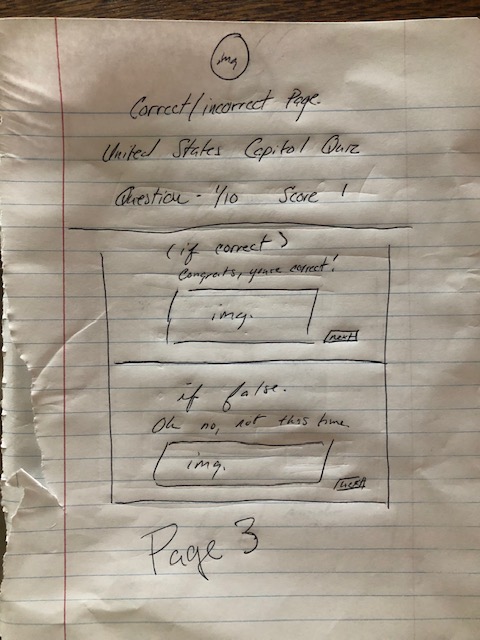 img
Correct/incorrect Page.
United States Capitol Quiz
Question - 1/10 Score 1
(if correct)
Congrats, youre correct!
img.
next
if false.
Oh no, not this time
img.
next
Page 3